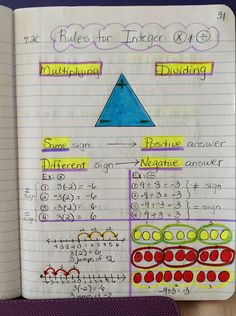 31
7.2C Rules for Integer ⊗ & ⊕
Multiplying Dividing
+
- -
Same sign → Positive answer
Different sign → Negative answer
Ex: ⊗ Ex: ÷
① 3(-2) = -6 ① 9 ÷ -3 = -3
② -3(2) = -6 ② -9 ÷ 3 = -3
③ -3(-2) = 6 ③ -9 ÷ -3 = 3
④ 3(2) = 6 ④ 9 ÷ 3 = 3
≠ sign
3(2) = 6
3 jumps of +2
3(-2) = -6
3 jumps of -2
-9 ÷ 3 = -3